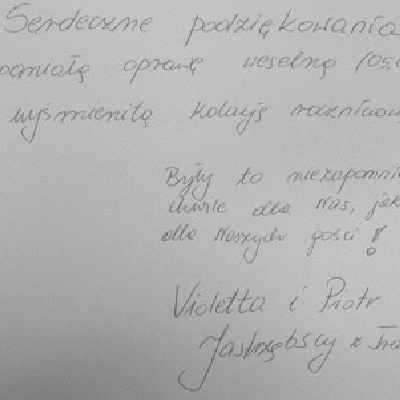 Serdeczne podziękowania
oprawę weselną
wyśmienitą kolację rocznicow
Były to niezapomni
chwile dla Nas, jak
dla Naszych gości!
Violetta i Piotr
Jastrzębscy z